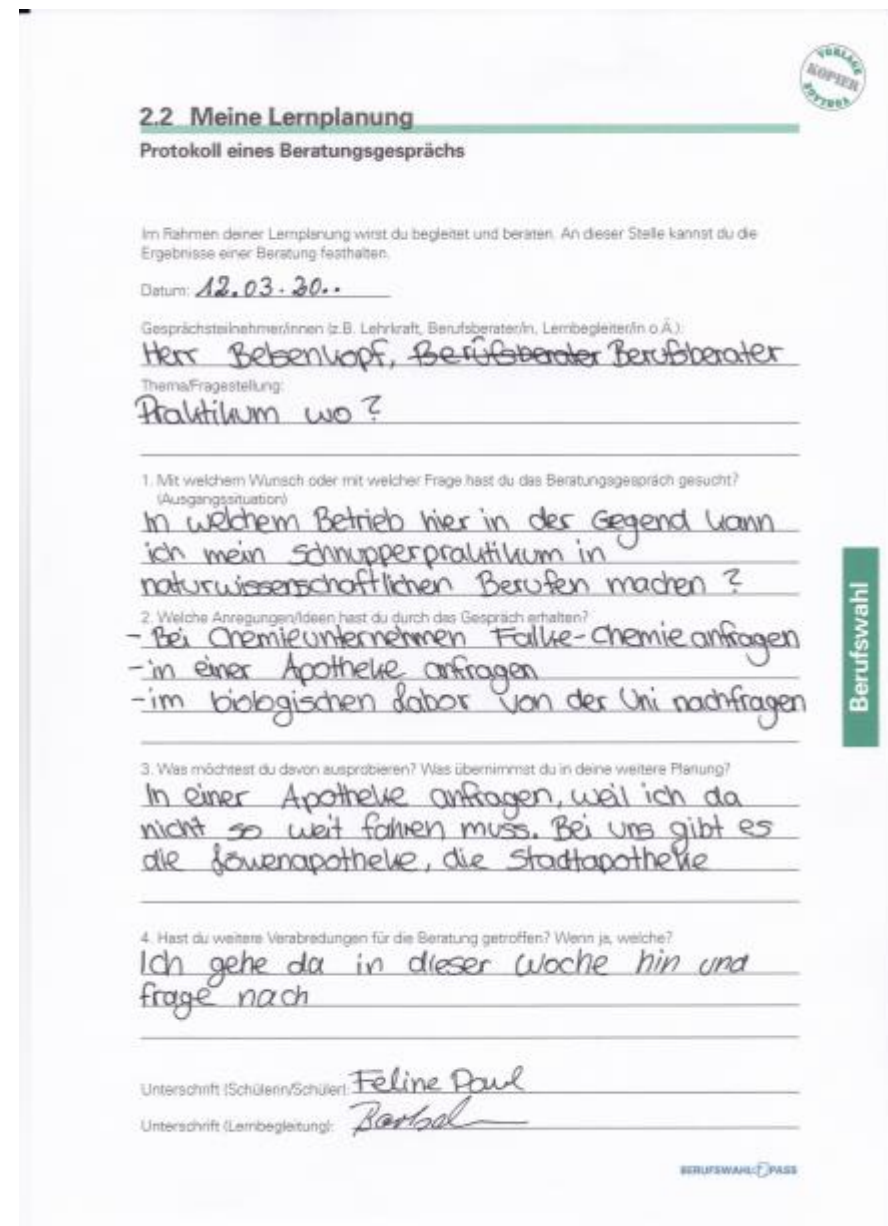 VORLAGE
KOPIER
VORLAGE
2.2 Meine Lernplanung
Protokoll eines Beratungsgesprächs
Im Rahmen deiner Lernplanung wirst du begleitet und beraten. An dieser Stelle kannst du die
Ergebnisse einer Beratung festhalten.
Datum: 12.03.20..
Gesprächsteilnehmer/innen (z.B. Lehrkraft, Berufsberater/in, Lernbegleiter/in o.Ä.):
Herr Belsenkopf, Berufsberater Berufsberater
Thema/Fragestellung:
Praktikum wo?
1. Mit welchem Wunsch oder mit welcher Frage hast du das Beratungsgespräch gesucht?
(Ausgangssituation)
In welchem Betrieb hier in der Gegend kann
ich mein Schnupperpraktikum in
naturwissenschaftlichen Berufen machen?
2. Welche Anregungen/Ideen hast du durch das Gespräch erhalten?
- Bei Chemieunternehmen Falke-Chemie anfragen
- in einer Apotheke anfragen
- im biologischen Labor von der Uni nachfragen
3. Was möchtest du davon ausprobieren? Was übernimmst du in deine weitere Planung?
In einer Apotheke anfragen, weil ich da
nicht so weit fahren muss. Bei uns gibt es
die Löwenapotheke, die Stadtapotheke
4. Hast du weitere Verabredungen für die Beratung getroffen? Wenn ja, welche?
Ich gehe da in dieser Woche hin und
frage nach
Unterschrift (Schülerin/Schüler): Feline Paul
Unterschrift (Lernbegleitung):
Berufswahl
BERUFSWAHL PASS